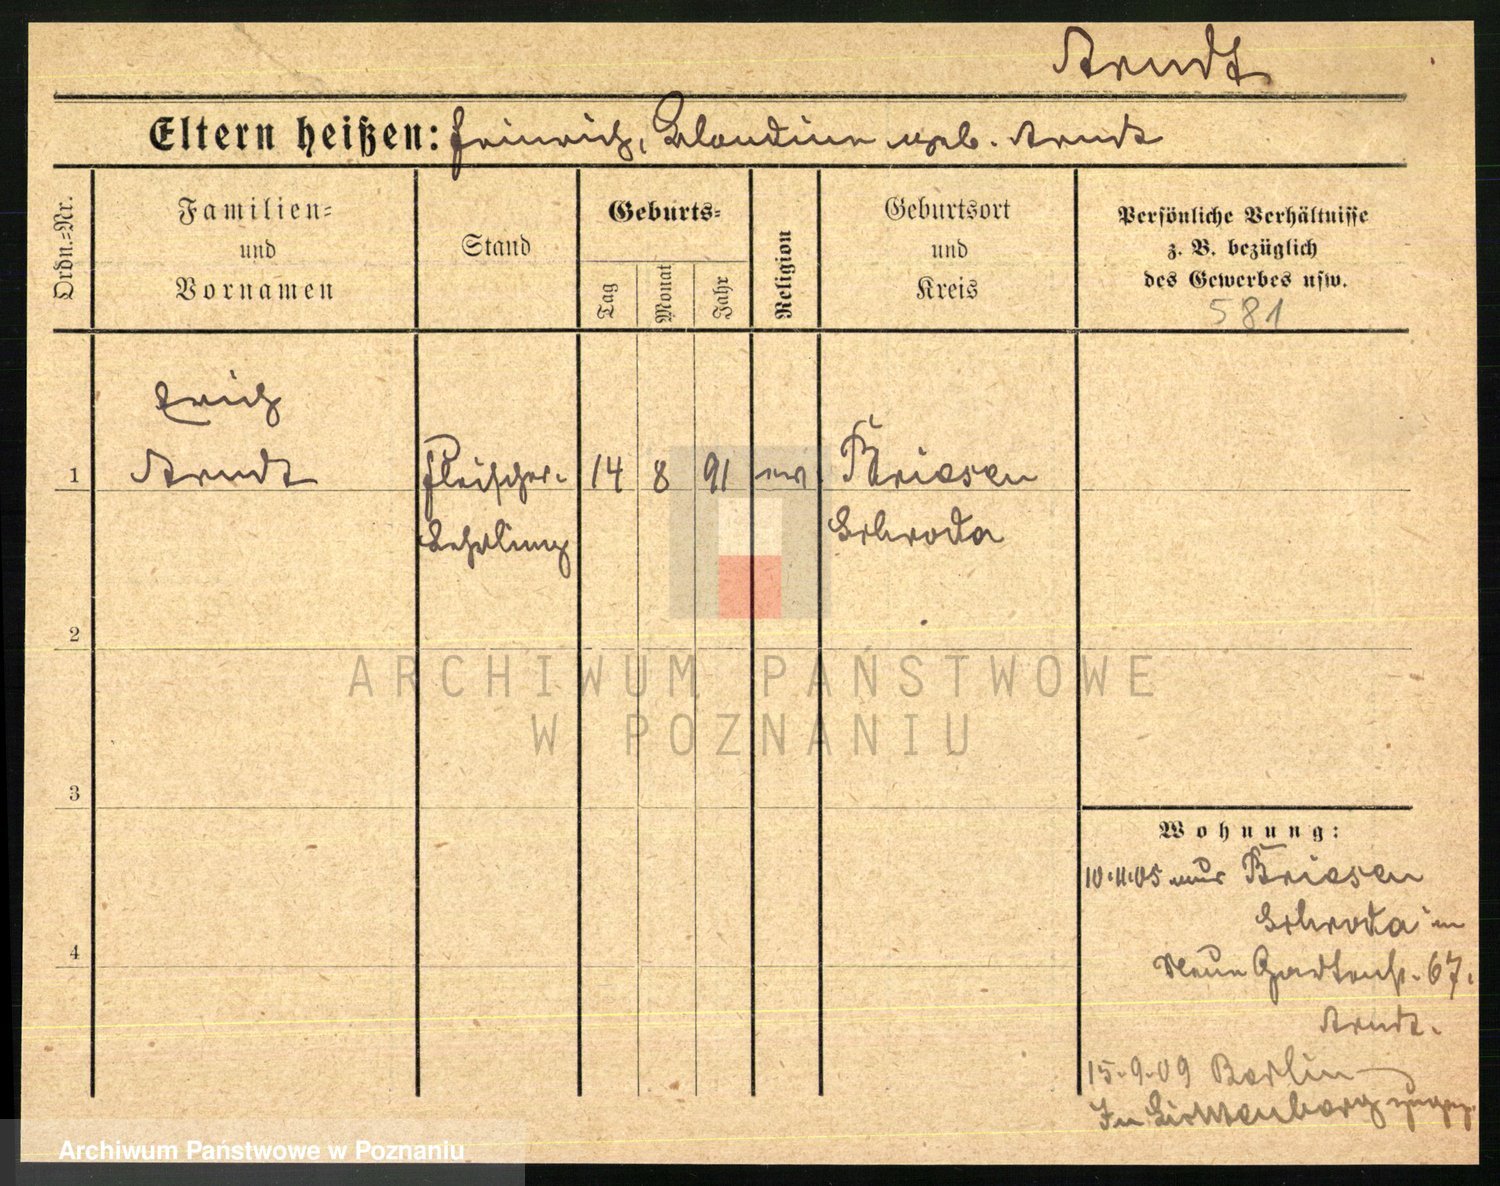 Arndt
Eltern heißen: Heinrich, Claudine geb. Arndt
Ordn.-Nr.
Familien-
und
Vornamen
Stand
Geburts-
Tag
Monat
Jahr
Religion
Geburtsort
und
Kreis
Persönliche Verhältnisse
z. B. bezüglich
des Gewerbes usw.
581
Erich
1 Arndt Fleischer- 14 8 91 ev. Briesen
Lehrling Schroda
2
3
4
Wohnung:
10.11.05 aus Briesen
Schroda in
Neue Gartenstr. 67.
Arndt.
15.9.09 Berlin
In Lichtenberg
ARCHIWUM PAŃSTWOWE
W POZNANIU
Archiwum Państwowe w Poznaniu